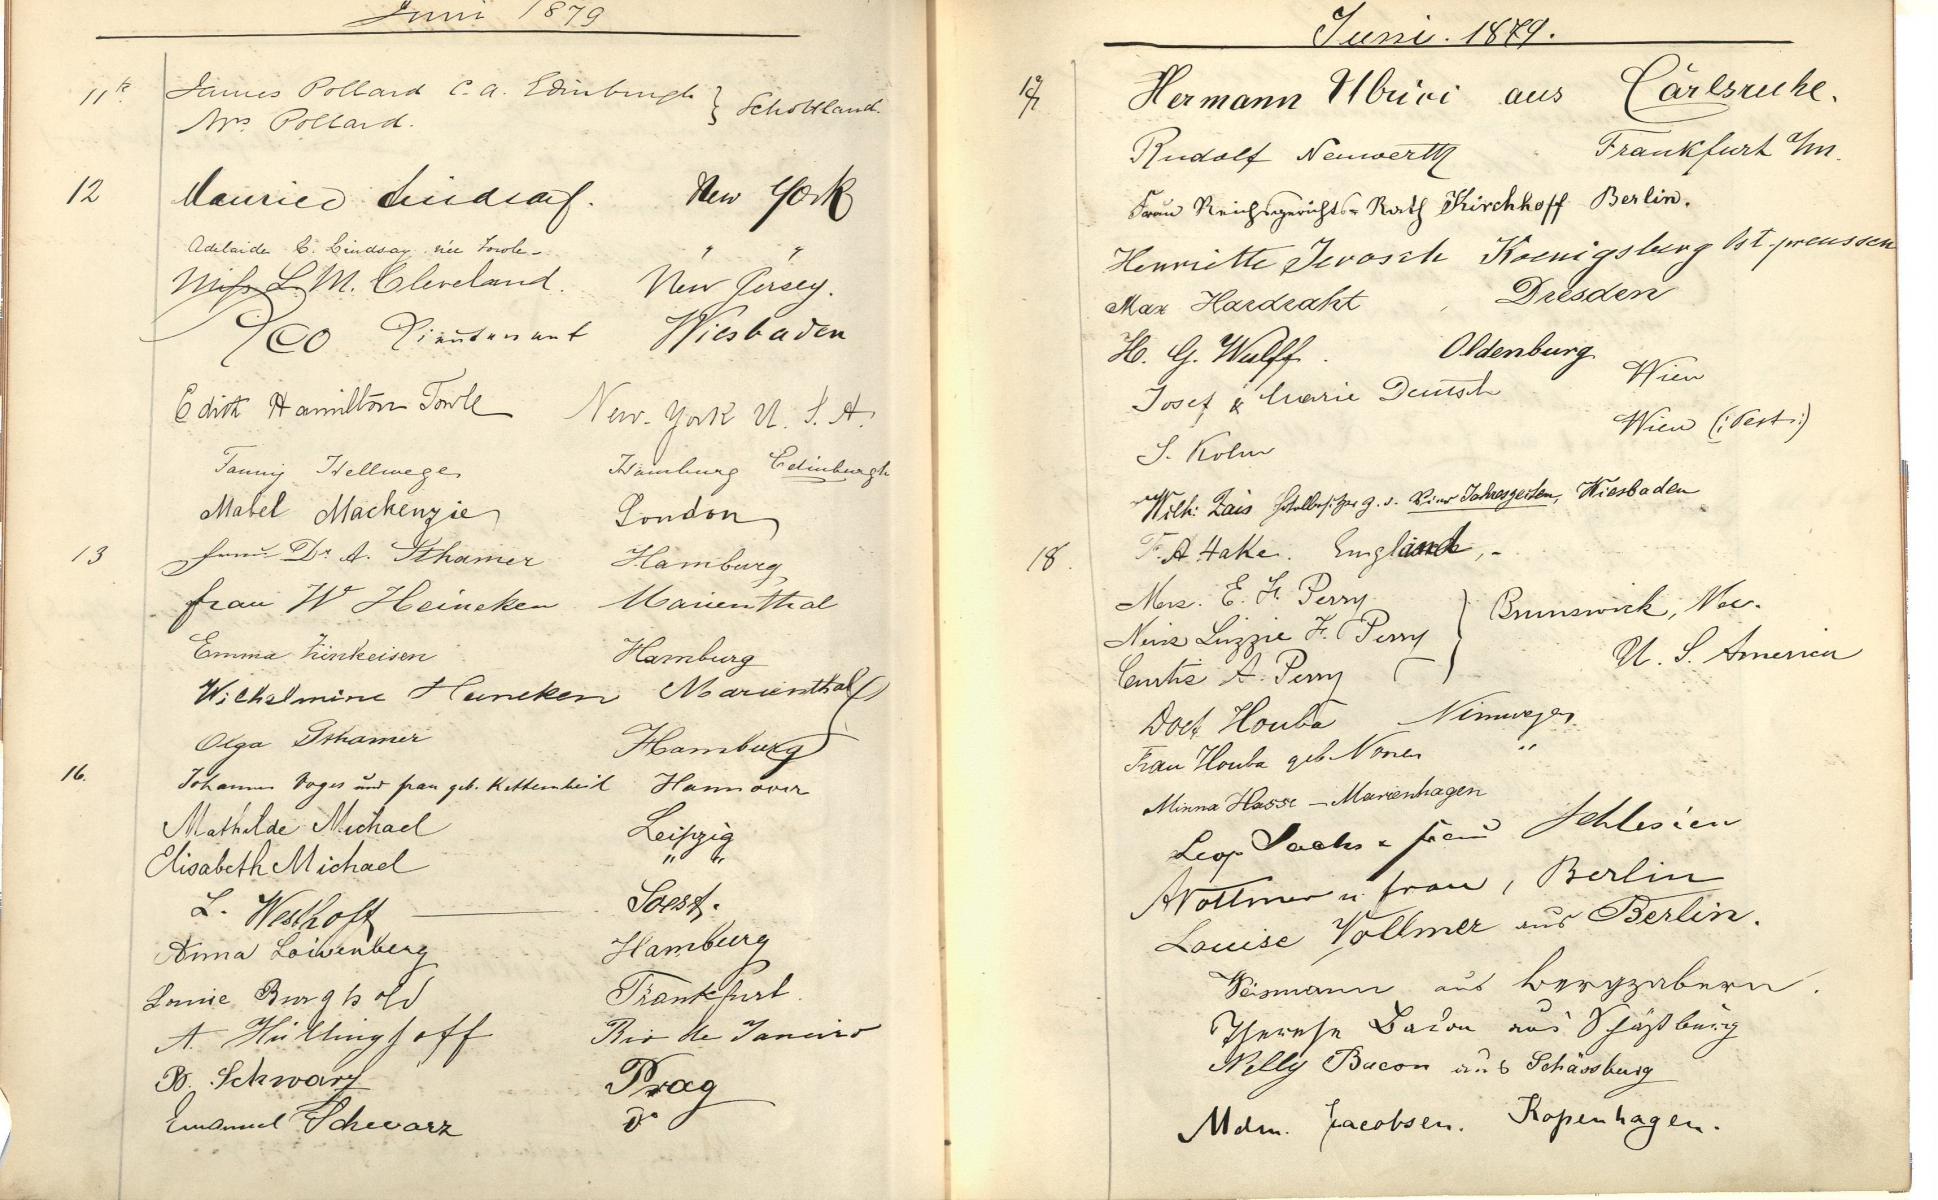 Juni 1879
11 James Pollard C.A. Edinburgh } Schottland.
Mrs Pollard.
12 Maurice Lindsay. New York
Adelaide C. Lindsay née Towle " "
Miss L. M. Cleveland. New Jersey.
Lieutenant Wiesbaden
Edith Hamilton Towle New-York U. S. A.
Fanny Hellwege Hamburg Edinburgh
Mabel Mackenzie London
13 Frau Dr A. Sthamer Hamburg
Frau W Heineken Marienthal
Emma Zinkeisen Hamburg
Wilhelmine Heineken Marienthal
Olga Sthamer Hamburg
16. Johannes Voges und frau geb. Hannover
Mathilde Michael Leipzig
Elisabeth Michael " "
L. Westhoff — Soest.
Anna Loiwenberg Hamburg
Louise Burghold Frankfurt.
A. Rio de Janeiro
B. Schwarz Prag
Emanuel Schwarz do
Juni. 1879.
17 Hermann Ulrici aus Carlsruhe.
Rudolf Neuwerth Frankfurt a/m.
Frau Reichsgerichts-Rath Kirchhoff Berlin.
Henriette Jerosch Koenigsberg Ost.preussen
Max Hardrakt Dresden
H. G. Wulff. Oldenburg
Josef & Marie Deutsch Wien
S. Kohn Wien (:Pest:)
Wilh: Zais Hotelbesitzer z. d. Vier Jahreszeiten, Wiesbaden
18. F. A Hake. England,-
Mrs. E. F. Perry
Miss Lizzie F. Perry } Brunswick, Me.
Curtis A. Perry U. S. America
Doct Houba Nimwegen
Frau Houba geb. "
Minna Hasse — Marienhagen
Leop Sachs & frau Schlesien
A Vollmer u frau, Berlin
Louise Vollmer aus Berlin.
Weismann aus Bergzabern.
Therese Bacon aus Schäßburg
Nelly Bacon aus Schässburg
Mdm. Jacobsen. Kopenhagen.